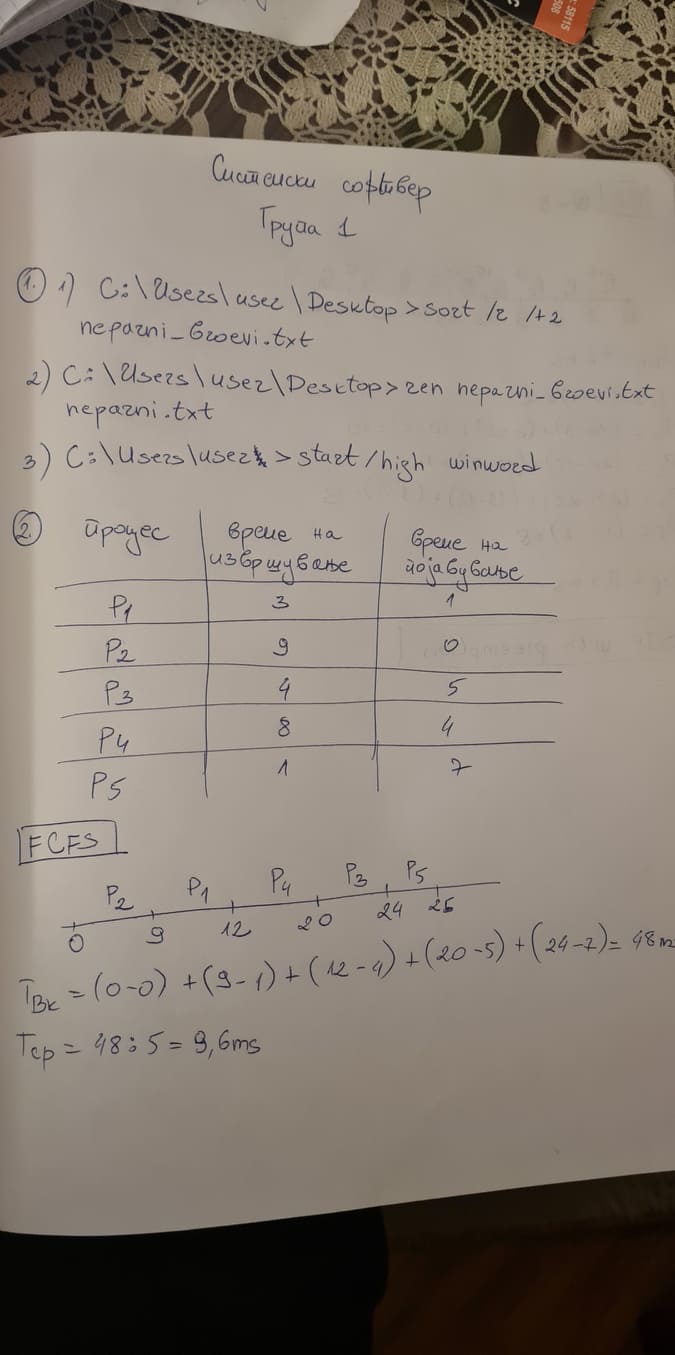 Системски софтвер
Група 1
1. 1) C:\Users\user\Desktop>sort /r /+2
neparni_broevi.txt
2) C:\Users\user\Desktop> ren neparni_broevi.txt
neparni.txt
3) C:\Users\user> start/high winword
2. процес време на извршување време на појавување
P1 3 1
P2 9 0
P3 4 5
P4 8 4
P5 1 7
FCFS
P2 P1 P4 P3 P5
0 9 12 20 24 25
Tвк = (0-0) + (9-1) + (12-4) + (20-5) + (24-7) = 48m
Tср = 48:5 = 9,6ms